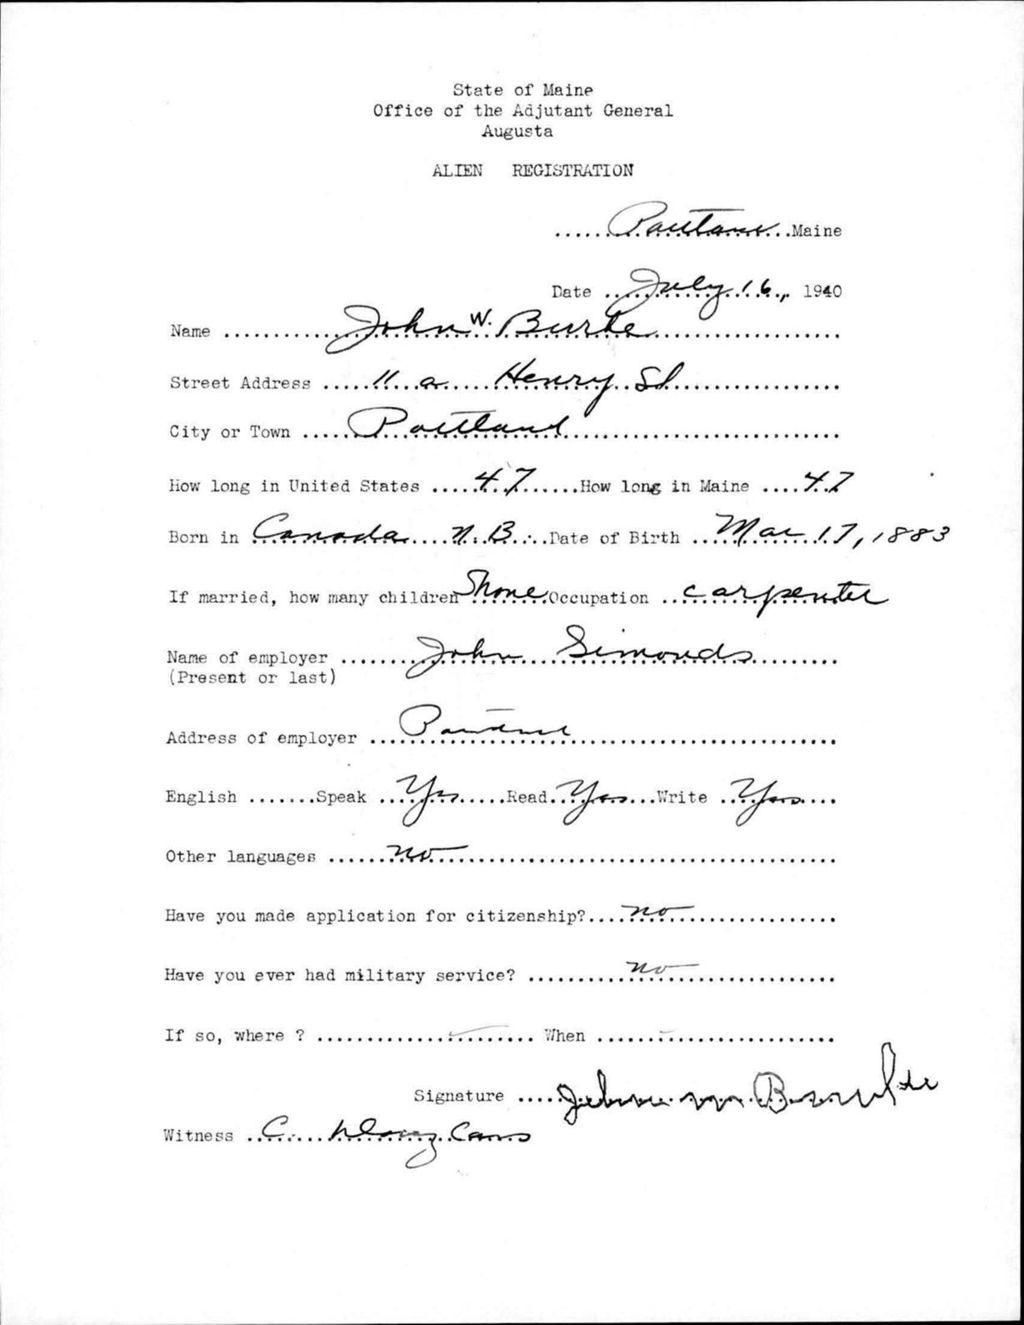 State of Maine
Office of the Adjutant General
Augusta
ALIEN REGISTRATION
......Portland..Maine
Date ..July 16,., 1940
Name ............John W. Burke....................
Street Address .....11..a.....Henry..St.................
City or Town .....Portland.............................
How long in United States .....47......How long in Maine ....47
Born in .Canada....N.B...Date of Birth ..Mar 17, 1883
If married, how many children none Occupation ..carpenter
Name of employer ........John....Simonds.........
(Present or last)
Address of employer ...Portland............................
English .......Speak ...Yes.....Read..Yes...Write ..Yes....
Other languages ......no..................................
Have you made application for citizenship?....no...............
Have you ever had military service? ..........no..............
If so, where ? ...................... When ........................
Signature ....John W. Burke
Witness ..C.